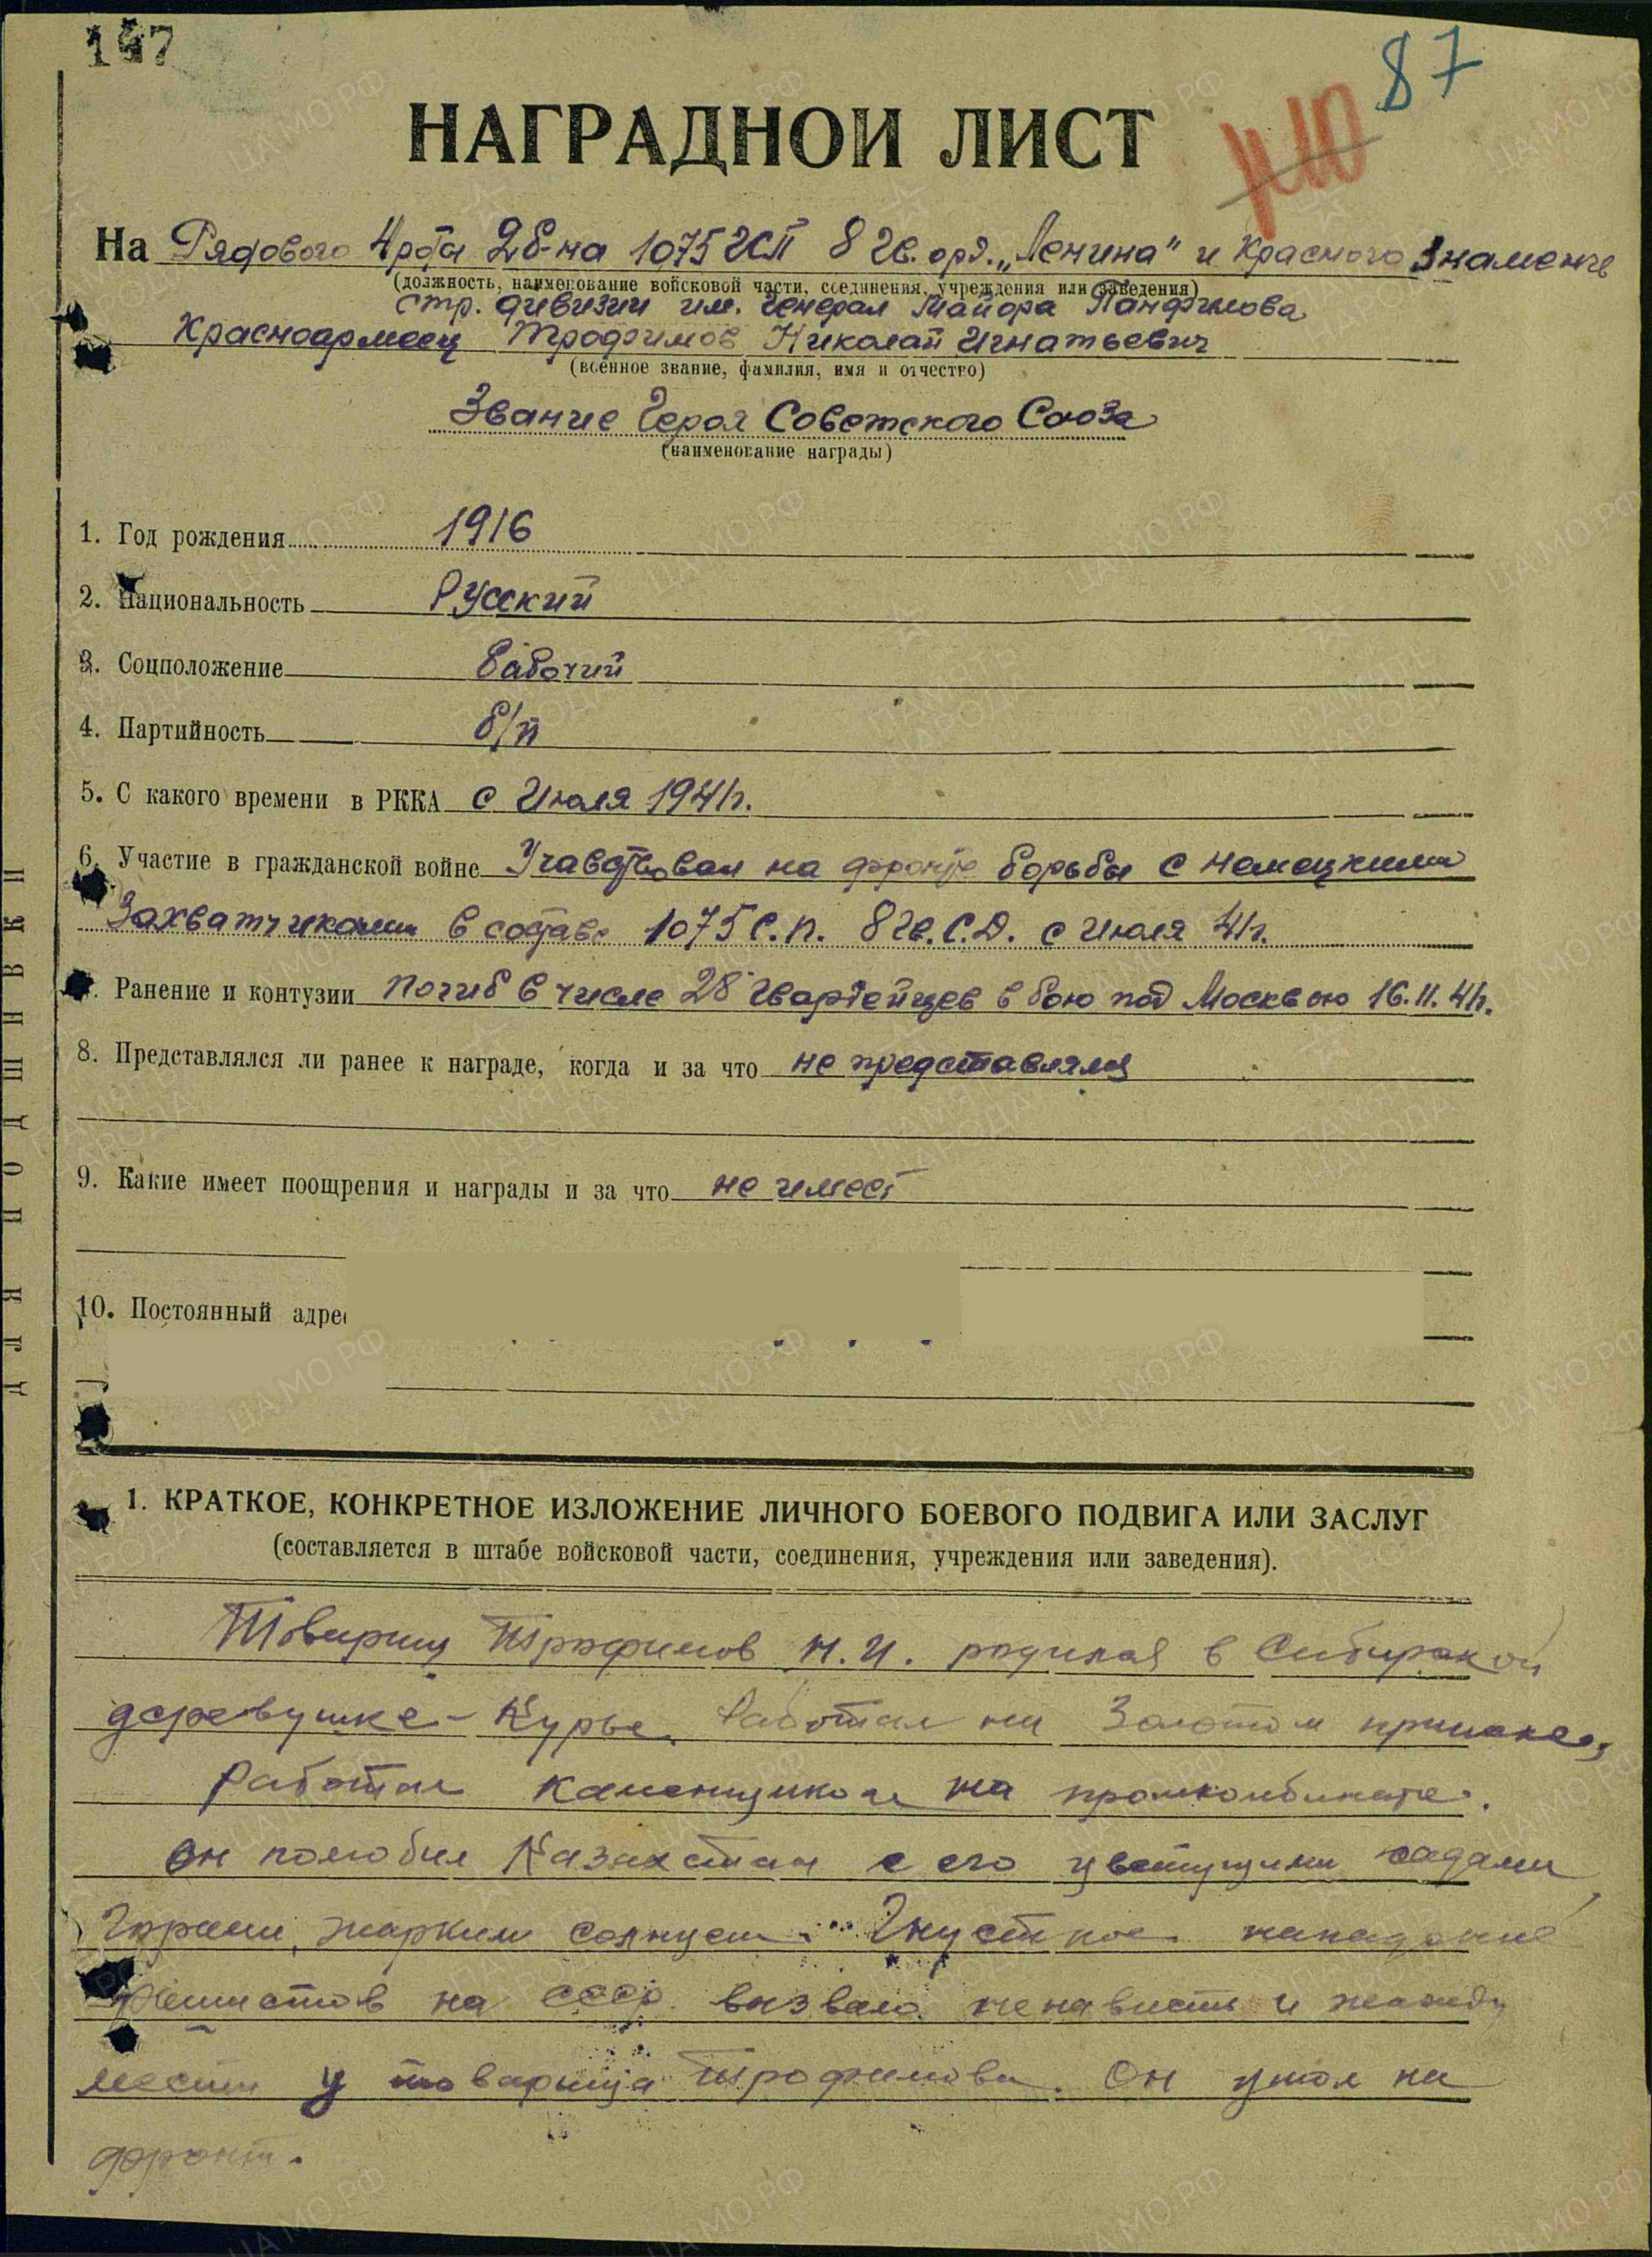 147
87
НАГРАДНОЙ ЛИСТ
На Рядового 4 роты 2 б-на 1075 ГСП 8 Гв. орд. „Ленина" и Красного Знамени
(должность, наименование войсковой части, соединения, учреждения или заведения)
стр. дивизии им. Генерал Майора Панфилова
Красноармеец Трофимов Николай Игнатьевич
(военное звание, фамилия, имя и отчество)
Звание Героя Советского Союза
(наименование награды)
1. Год рождения 1916
2. Национальность Русский
3. Соцположение Рабочий
4. Партийность б/п
5. С какого времени в РККА с Июля 1941г.
6. Участие в гражданской войне Учавствовал на фронте борьбы с немецкими
Захватчиками в составе 1075 С.п. 8 Гв.С.Д. с Июля 41г.
Ранение и контузии погиб в числе 28 гвардейцев в бою под Москвою 16.11.41г.
8. Представлялся ли ранее к награде, когда и за что не представлялся
9. Какие имеет поощрения и награды и за что не имеет
10. Постоянный адрес
ДЛЯ ПОДШИВКИ
1. КРАТКОЕ, КОНКРЕТНОЕ ИЗЛОЖЕНИЕ ЛИЧНОГО БОЕВОГО ПОДВИГА ИЛИ ЗАСЛУГ
(составляется в штабе войсковой части, соединения, учреждения или заведения).
Товарищ Трофимов Н.И. родился в Сибирской
деревушке - Курье. Работал на Золотом прииске,
Работал каменщиком на промкомбинате.
Он полюбил Казахстан с его цветущими садами,
Горами, жарким солнцем. Гнустное нападение
фашистов на СССР вызвало ненависть и жажду
мести у товарища Трофимова. Он ушол на
фронт.